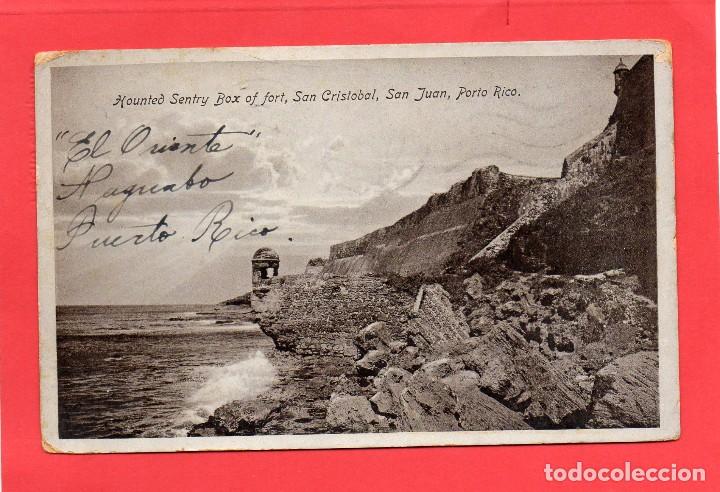 Hounted Sentry Box of fort, San Cristobal, San Juan, Porto Rico.
"El Oriente"
Naguabo
Puerto Rico.
todocoleccion.net